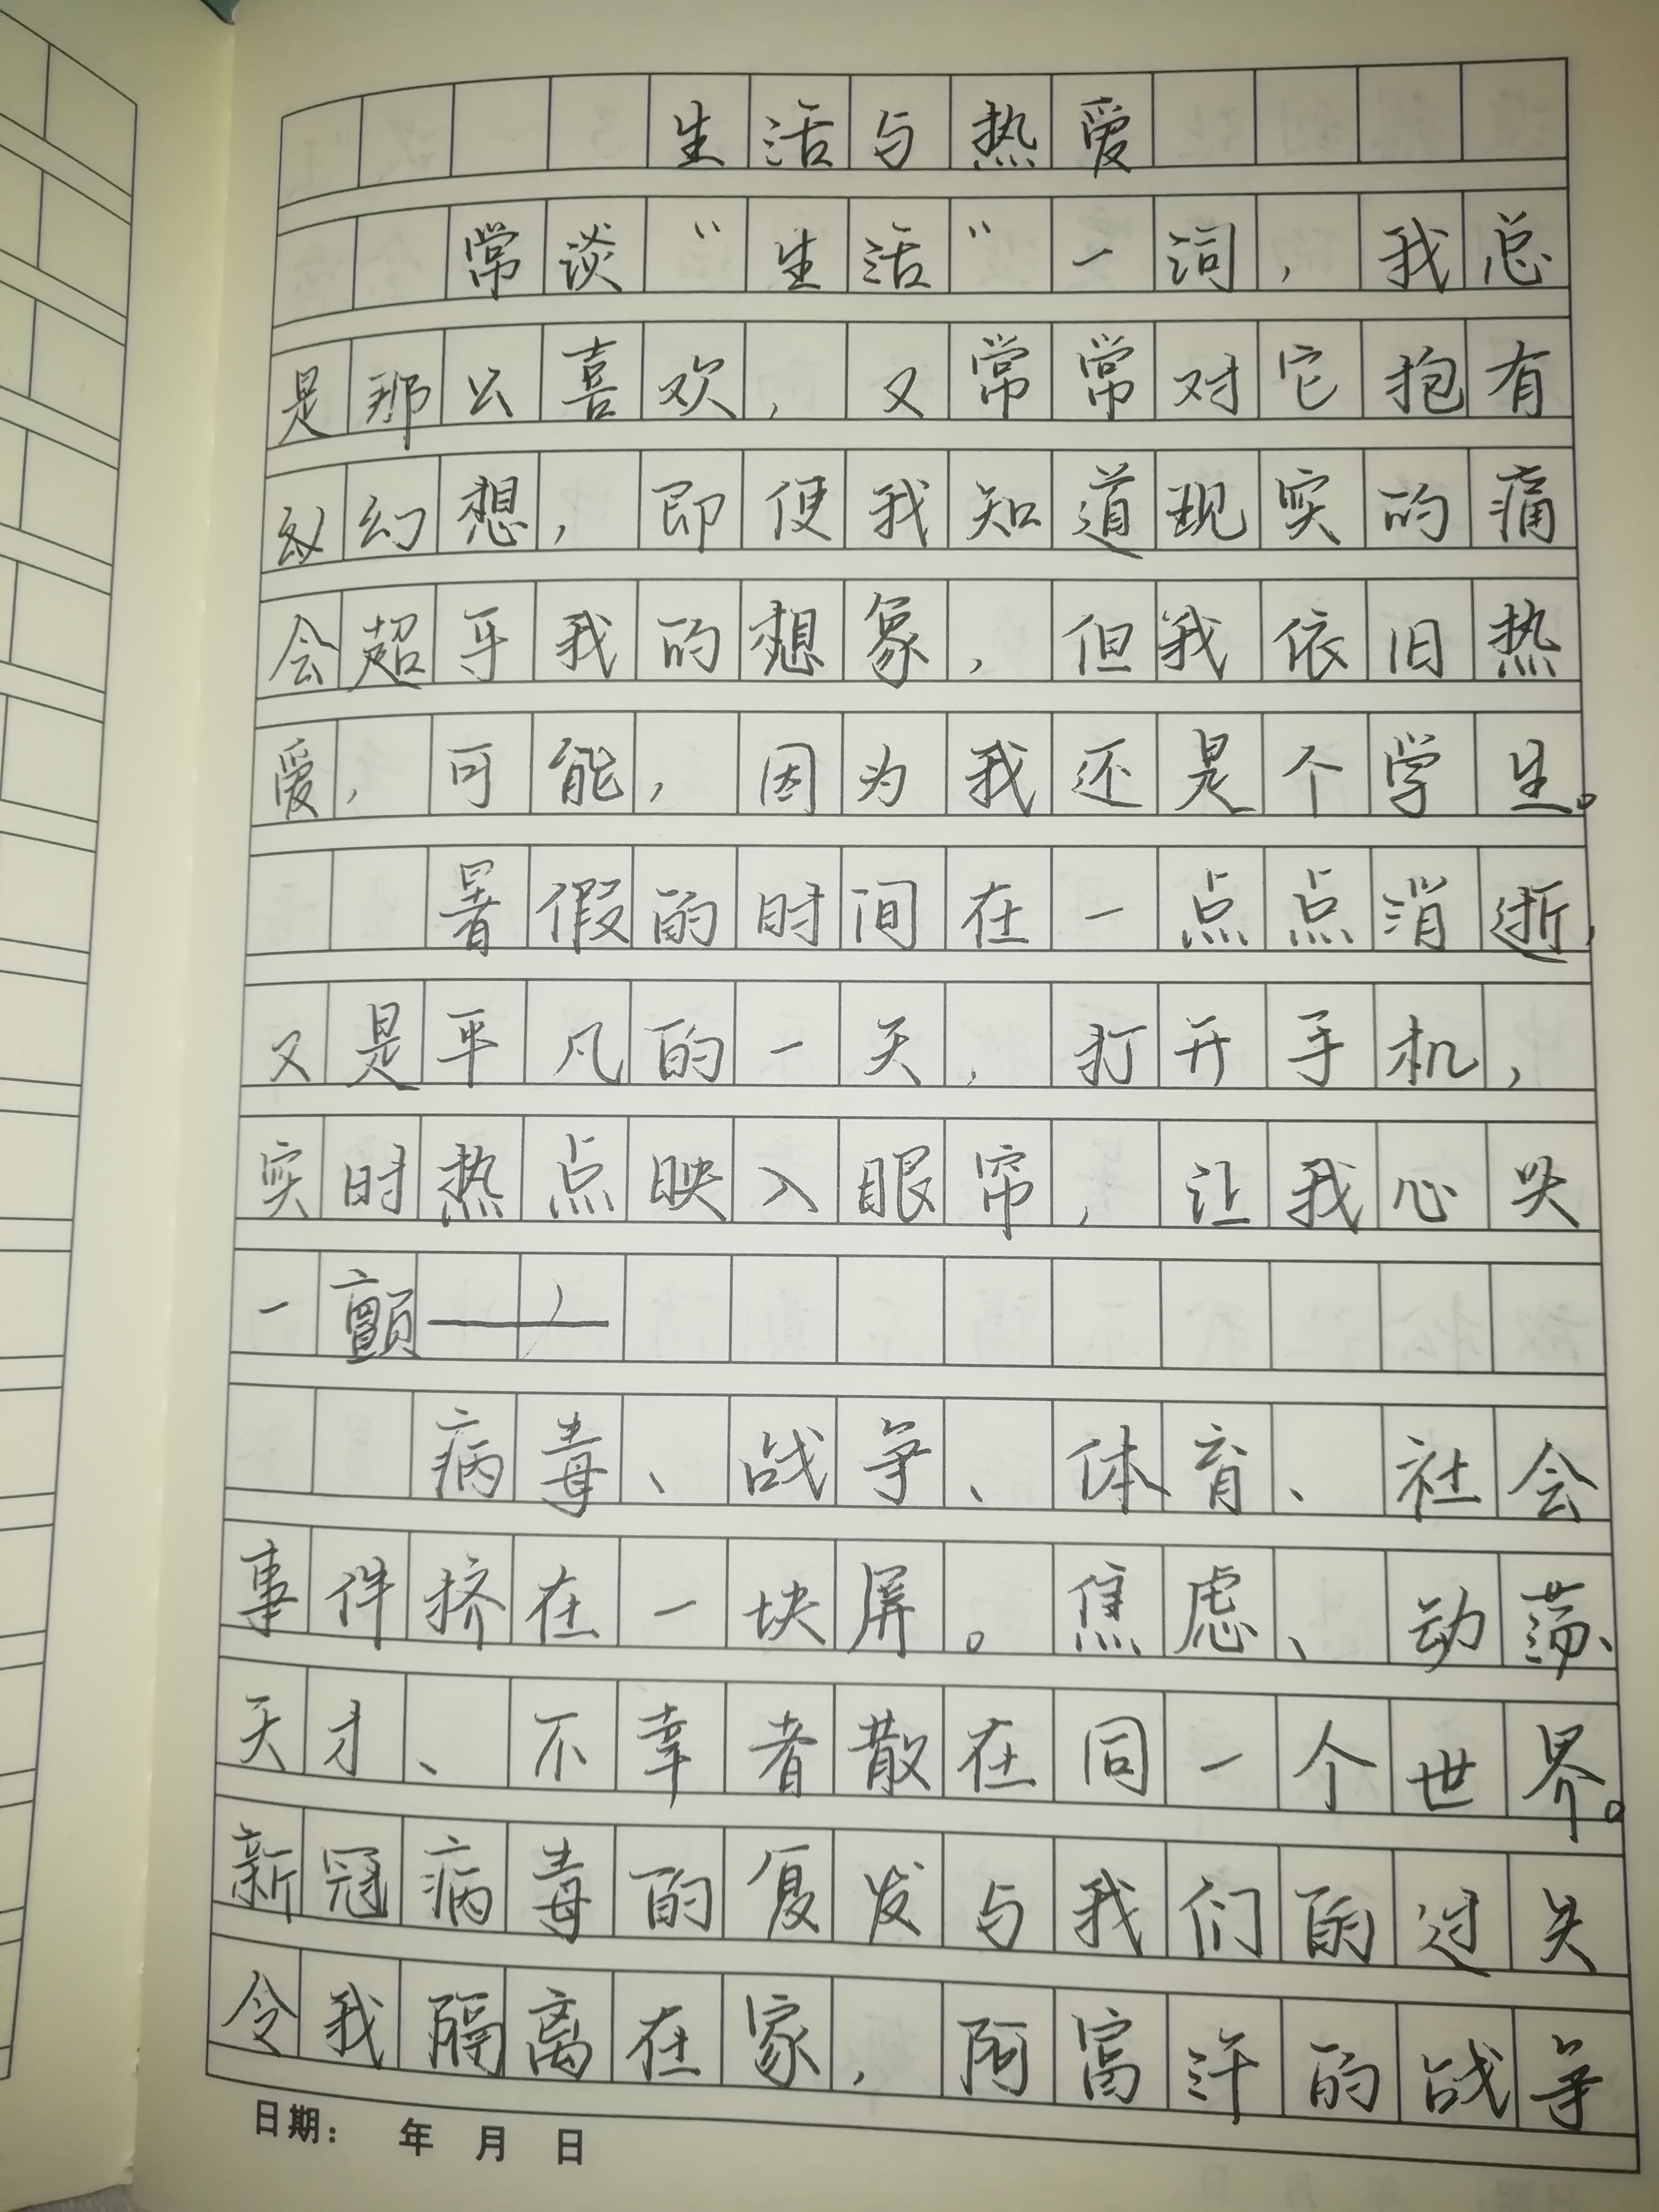 生活与热爱
常谈“生活”一词，我总
是那么喜欢，又常常对它抱有
幻想，即便我知道现实的痛
会超乎我的想象，但我依旧热
爱，可能，因为我还是个学生。
暑假的时间在一点点消逝，
又是平凡的一天，打开手机，
实时热点映入眼帘，让我心头
一颤——
病毒、战争、体育、社会
事件挤在一块屏。焦虑、动荡、
天才、不幸者散在同一个世界。
新冠病毒的复发与我们的过失
令我隔离在家，阿富汗的战争
日期： 年 月 日